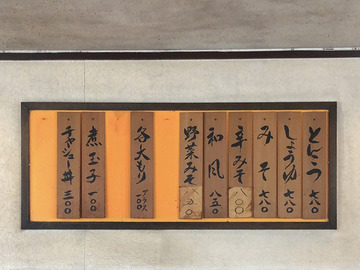 とんこつ 七八〇
しょうゆ 七八〇
みそ 七八〇
辛みそ 八〇〇
和風 八五〇
野菜みそ
各大もり プラス一〇〇
煮玉子 一〇〇
チャーシュー丼 三〇〇